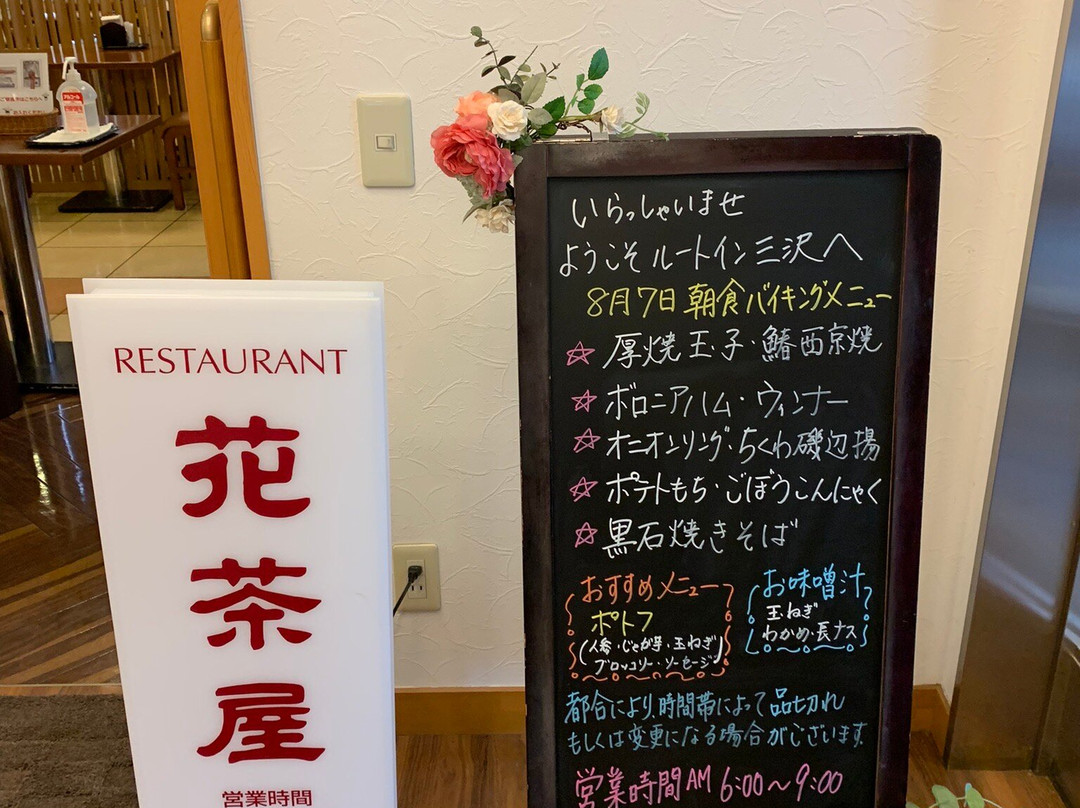 RESTAURANT
花茶屋
営業時間
いらっしゃいませ
ようこそ ルートイン三沢へ
8月7日 朝食バイキングメニュー
☆ 厚焼玉子・鰆西京焼
☆ ボロニアハム・ウィンナー
☆ オニオンリング・ちくわ磯辺揚
☆ ポテトもち・ごぼうこんにゃく
☆ 黒石焼きそば
おすすめメニュー
ポトフ
(人参・じゃが芋・玉ねぎ
ブロッコリー・ソーセージ)
お味噌汁
玉ねぎ
わかめ・長ナス
都合により、時間帯によって品切れ
もしくは変更になる場合がございます。
営業時間 AM 6:00〜9:00